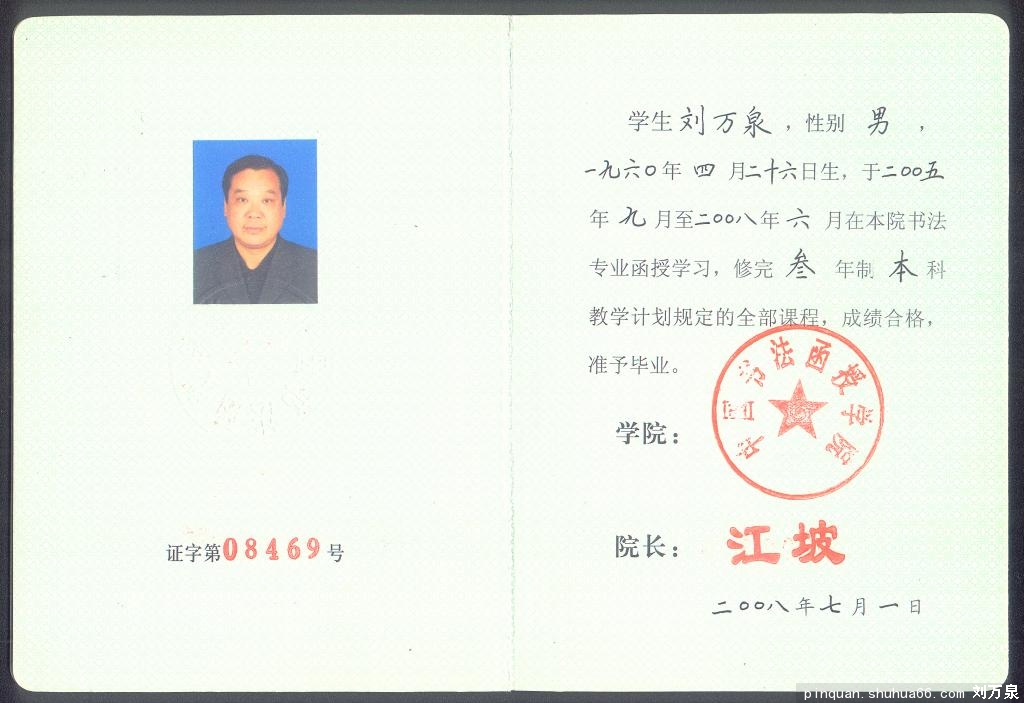 证字第08469号
学生刘万泉,性别 男 ,
一九六〇年 四 月二十六日生,于二〇〇五
年 九 月至二〇〇八年 六 月在本院书法
专业函授学习,修完 叁 年制 本 科
教学计划规定的全部课程,成绩合格,
准予毕业。
中国书法函授学院
学院:
院长: 江坡
二〇〇八年七月一日
pinquan.shuhua66.com 刘万泉